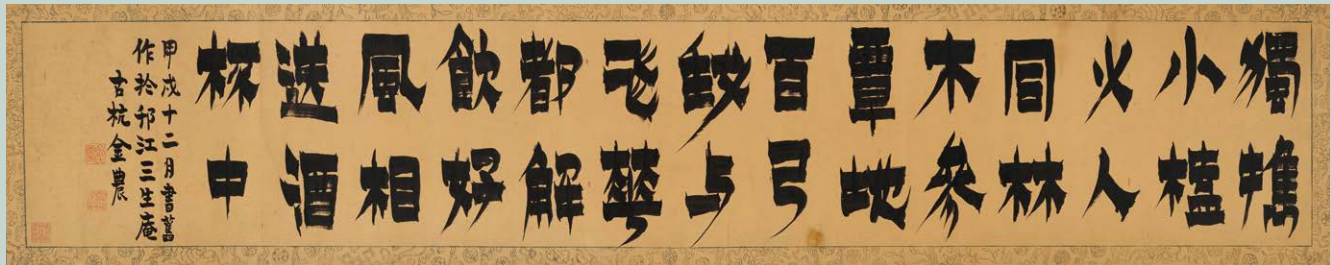 獨攜
小榼
少人
同林
木參
覃地
百弓
我与
飛華
都解
飲好
風相
送酒
杯中
甲戌十二月書舊
作於邗江三生庵
古杭金農